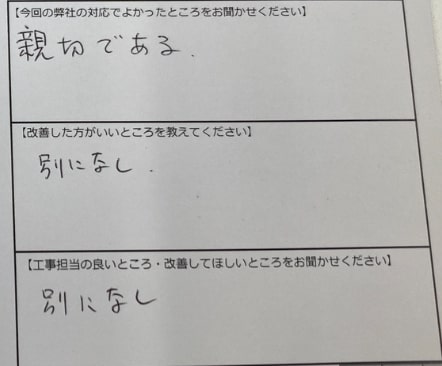 【今回の弊社の対応でよかったところをお聞かせください】
親切である.
【改善した方がいいところを教えてください】
別になし.
【工事担当の良いところ・改善してほしいところをお聞かせください】
別になし